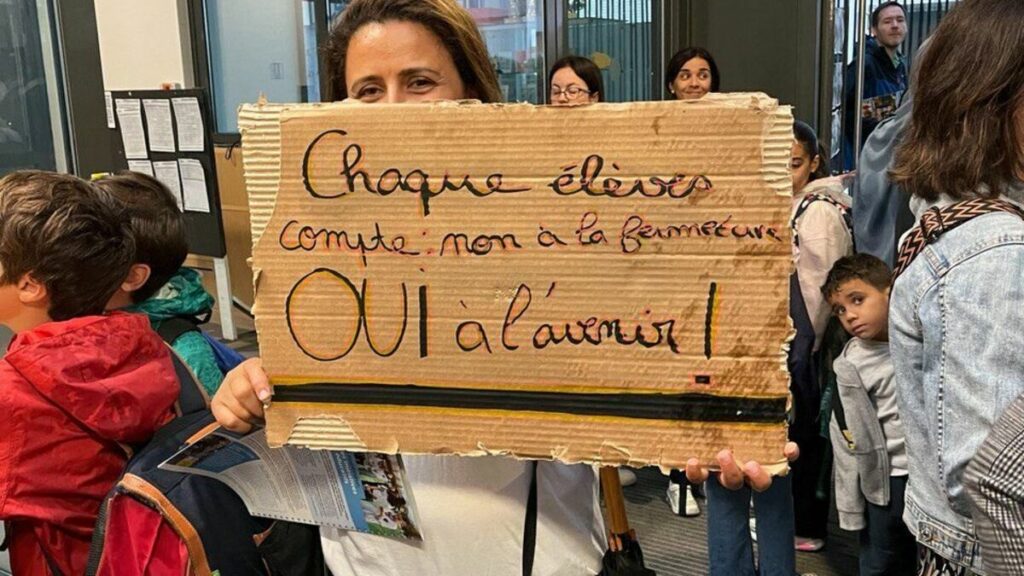 Chaque élèves
compte : non à la fermeture
OUI à l'avenir !